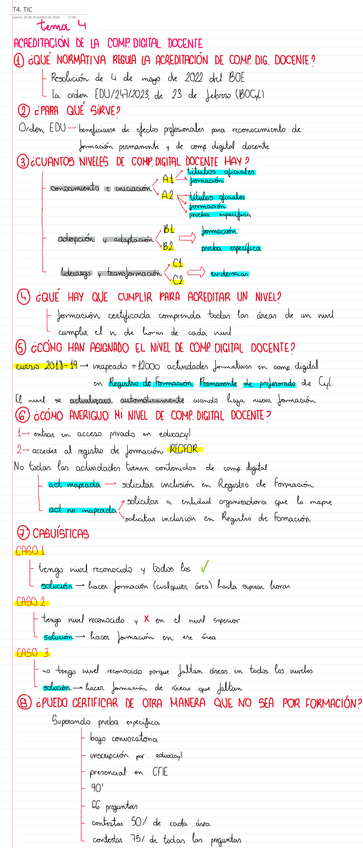 T4. TIC
tema 4
ACREDITACIÓN DE LA COMP. DIGITAL DOCENTE
① ¿QUÉ NORMATIVA REGULA LA ACREDITACIÓN DE COMP. DIG. DOCENTE?
Resolución de 4 de mayo de 2022 del BOE
La orden EDU/247/2023, de 23 de febrero (BOCyL)
② ¿PARA QUÉ SIRVE?
Orden EDU → beneficiarse de efectos profesionales para reconocimiento de
formación permanente y de comp. digital docente
③ ¿CUANTOS NIVELES DE COMP DIGITAL DOCENTE HAY?
conocimiento e iniciación
A1 → títulos oficiales
formación
A2 → títulos oficiales
formación
prueba específica
adopción y adaptación
B1
B2
formación
prueba específica
liderazgo y transformación
C1
C2
evidencias
④ ¿QUÉ HAY QUE CUMPLIR PARA ACREDITAR UN NIVEL?
formación certificada comprenda todas las áreas de un nivel
cumplir el nº de horas de cada nivel
⑤ ¿CÓMO HAN ASIGNADO EL NIVEL DE COMP DIGITAL DOCENTE?
curso 2018-19 → mapeado +12000 actividades formativas en comp digital
en Registro de Formación Permanente de profesorado de CyL.
El nivel se actualizará automáticamente cuando haya nueva formación
⑥ ¿CÓMO AVERIGUO MI NIVEL DE COMP. DIGITAL DOCENTE?
1 → entrar en acceso privado en educacyl
2 → acceder al registro de formación REGFOR
No todas las actividades tienen contenidos de comp digital
act. mapeada → solicitar inclusión en Registro de Formación
act no mapeada
solicitar a entidad organizadora que lo mapee
solicitar inclusión en Registro de Formación
⑦ CASUÍSTICAS
CASO 1
tengo nivel reconocido y todos los ✓
solución → hacer formación (cualquier área) hasta superar horas
CASO 2
tengo nivel reconocido y X en el nivel superior
solución → hacer formación en ese área
CASO 3
no tengo nivel reconocido porque faltan áreas en todos los niveles
solución → hacer formación de áreas que faltan
⑧ ¿PUEDO CERTIFICAR DE OTRA MANERA QUE NO SEA POR FORMACIÓN?
Superando prueba específica
bajo convocatoria
inscripción por educacyl
presencial en CFIE
90'
66 preguntas
contestar 50% de cada área
contestar 75% de todas las preguntas